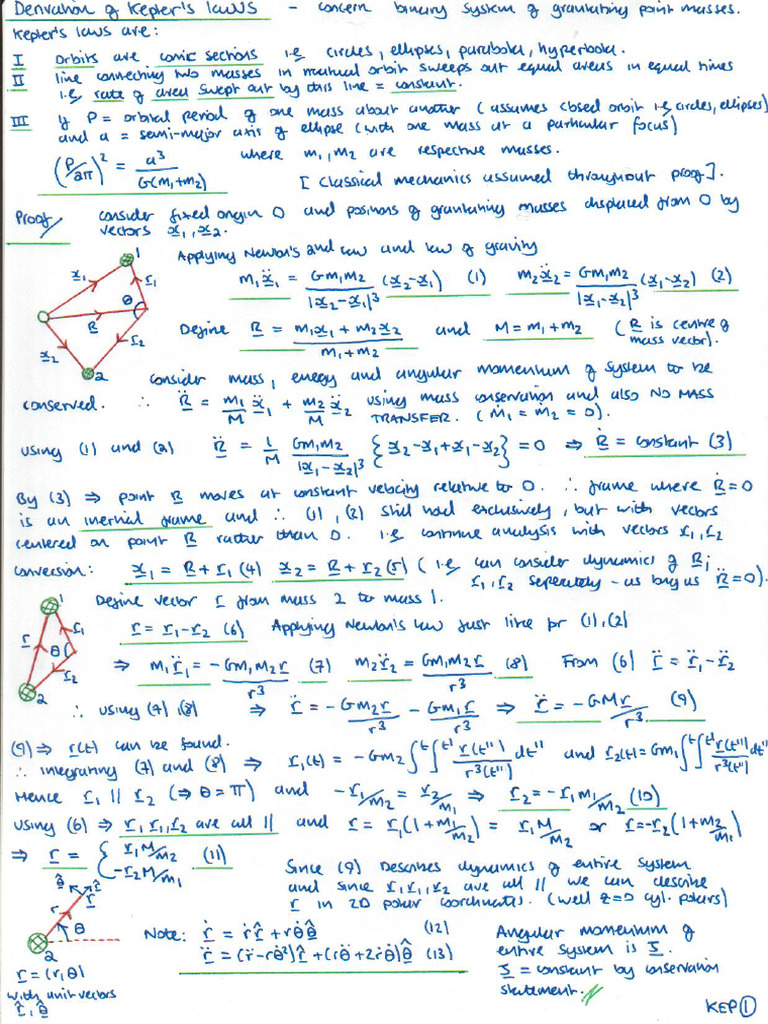 Derivation of Kepler's laws - concern binary system of gravitating point masses.
Kepler's laws are:
I orbits are conic sections i.e circles, ellipses, parabolae, hyperbolae.
II line connecting two masses in mutual orbit sweeps out equal areas in equal times
i.e. rate of area swept out by this line = constant.
III If P = orbital period of one mass about another (assumes closed orbit i.e. circles, ellipses)
and a = semi-major axis of ellipse (with one mass at a particular focus)
(P/2π)² = a³/G(m₁+m₂) where m₁, m₂ are respective masses.
[Classical mechanics assumed throughout proof].
Proof/ consider fixed origin O and positions of gravitating masses displaced from O by
vectors x₁, x₂.
Applying Newton's 2nd law and law of gravity
m₁ẍ₁ = Gm₁m₂/|x₂-x₁|³ (x₂-x₁) (1) m₂ẍ₂ = Gm₁m₂/|x₁-x₂|³ (x₁-x₂) (2)
Define R = m₁x₁ + m₂x₂/m₁+m₂ and M = m₁+m₂ (R is centre of
mass vector).
x₁ 1 r₁ θ R x₂ r₂ 2
consider mass, energy and angular momentum of system to be
conserved. ∴ R̈ = m₁/M ẍ₁ + m₂/M ẍ₂ using mass conservation and also NO MASS
TRANSFER. (ṁ₁ = ṁ₂ = 0).
using (1) and (2) R̈ = 1/M Gm₁m₂/|x₁-x₂|³ {x₂-x₁+x₁-x₂} = 0 ⇒ Ṙ = constant (3)
By (3) ⇒ point R moves at constant velocity relative to O. ∴ frame where Ṙ = 0
is an inertial frame and ∴ (1), (2) still hold exclusively, but with vectors
centered on point R rather than O. i.e continue analysis with vectors r₁, r₂
conversion: x₁ = R + r₁ (4) x₂ = R + r₂ (5) (i.e can consider dynamics of R;
r₁, r₂ seperately - as long as R̈ = 0).
1 r r₁ θ r₂ 2
Define vector r from mass 2 to mass 1.
r = r₁-r₂ (6) Applying Newton's law just like for (1), (2)
⇒ m₁r̈₁ = -Gm₁m₂r/r³ (7) m₂r̈₂ = Gm₁m₂r/r³ (8) From (6) r̈ = r̈₁-r̈₂
∴ using (7), (8) ⇒ r̈ = -Gm₂r/r³ - Gm₁r/r³ ⇒ r̈ = -GMr/r³ (9)
(9) ⇒ r(t) can be found.
∴ integrating (7) and (8) ⇒ r₁(t) = -Gm₂∫ᵗ∫ᵗ' r(t'')/r³(t'') dt'' and r₂(t) = Gm₁∫ᵗ∫ᵗ' r(t'')/r³(t'') dt''
Hence r₁ || r₂ (⇒ θ = π) and -r₁/m₂ = r₂/m₁ ⇒ r₂ = -r₁m₁/m₂ (10)
using (6) ⇒ r, r₁, r₂ are all || and r = r₁(1+m₁/m₂) = r₁M/m₂ or r = -r₂(1+m₂/m₁)
⇒ r = { r₁M/m₂ -r₂M/m₁ (11)
Since (9) Describes dynamics of entire system
and since r, r₁, r₂ are all || we can describe
r in 2D polar coordinates. (well z=0 cyl. polars)
θ̂ r̂ r r θ 2
r = (r, θ)
with unit vectors
r̂, θ̂
Note: ṙ = ṙr̂ + rθ̇θ̂ (12)
r̈ = (r̈-rθ̇²)r̂ + (rθ̈+2ṙθ̇)θ̂ (13)
Angular momentum of
entire system is J.
J = constant by conservation
statement.
KEP 1